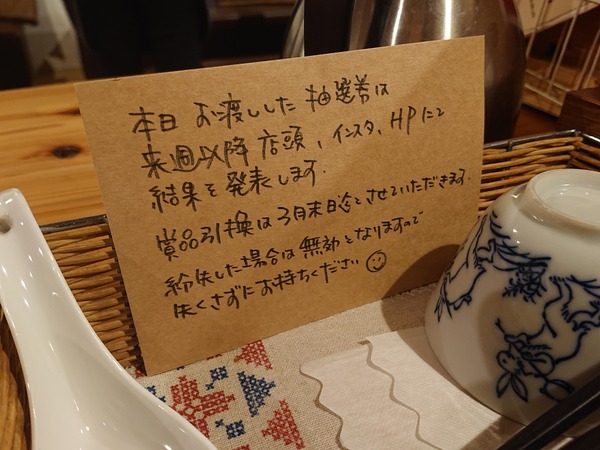 本日 お渡しした 抽選券は
来週以降 店頭、インスタ、HPにて
結果を発表します.
賞品引換は3月末日迄とさせていただきます.
紛失した場合は 無効となりますので
失くさずにお持ちください